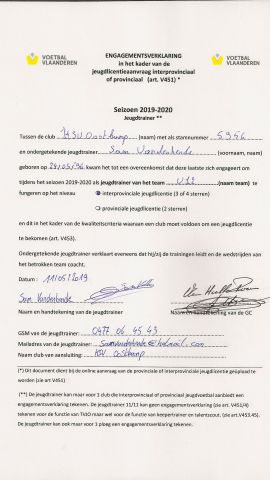 VOETBAL VLAANDEREN
ENGAGEMENTSVERKLARING
in het kader van de
jeugdlicentieaanvraag interprovinciaal
of provinciaal (art. V451) *
VOETBAL VLAANDEREN
Seizoen 2019-2020
Jeugdtrainer **
Tussen de club HSV Oostkamp (naam) met als stamnummer 5956
en ondergetekende jeugdtrainer Sam Vandenbende (voornaam, naam)
geboren op 29/05/96 kwam het tot een overeenkomst dat deze laatste zich engageert om
tijdens het seizoen 2019-2020 als jeugdtrainer van het team U12 (naam team) te
fungeren op het niveau interprovinciale jeugdlicentie (3 of 4 sterren)
provinciale jeugdlicentie (2 sterren)
en dit in het kader van de kwaliteitscriteria waaraan een club moet voldoen om een jeugdlicentie
te bekomen (art. V453).
Ondergetekende jeugdtrainer verklaart eveneens dat hij/zij de trainingen leidt en de wedstrijden van
het betrokken team coacht.
Datum : 11/05/2019
Sam Vandenbende
Naam en handtekening van de jeugdtrainer Naam en handtekening van de GC
GSM van de jeugdtrainer: 0477 06 45 43
Mailadres van de jeugdtrainer:
Naam club van aansluiting: KSV Oostkamp
(*) Dit document dient bij de online aanvraag van de provinciale of interprovinciale jeugdlicentie geüpload te
worden (zie art V451)
(**) De jeugdtrainer kan maar voor 1 club die interprovinciaal of provinciaal jeugdvoetbal aanbiedt een
engagementsverklaring tekenen. De jeugdtrainer 11/11 kan geen engagementsverklaring (zie art. V451/4)
tekenen voor de functie van TVJO maar wel voor de functie van keepertrainer en talentscout. (zie art V453.45).
De jeugdtrainer kan ook maar voor 1 ploeg een engagementsverklaring tekenen.